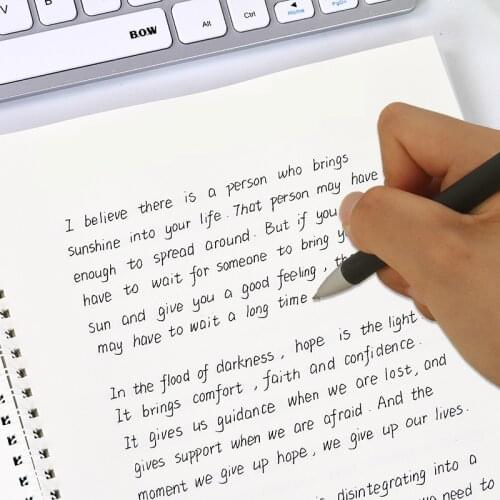 V
B
BOW
Alt
Ctrl
Home
PgDn
I believe there is a person who brings
sunshine into your life. That person may have
enough to spread around. But if you
have to wait for someone to bring
sun and give you a good feeling,
may have to wait a long time.
In the flood of darkness, hope is the light.
It brings comfort, faith and confidence.
It gives us guidance when we are lost, and
gives support when we are afraid. And the
moment we give up hope, we give up our lives.
disintegrating into a
need to